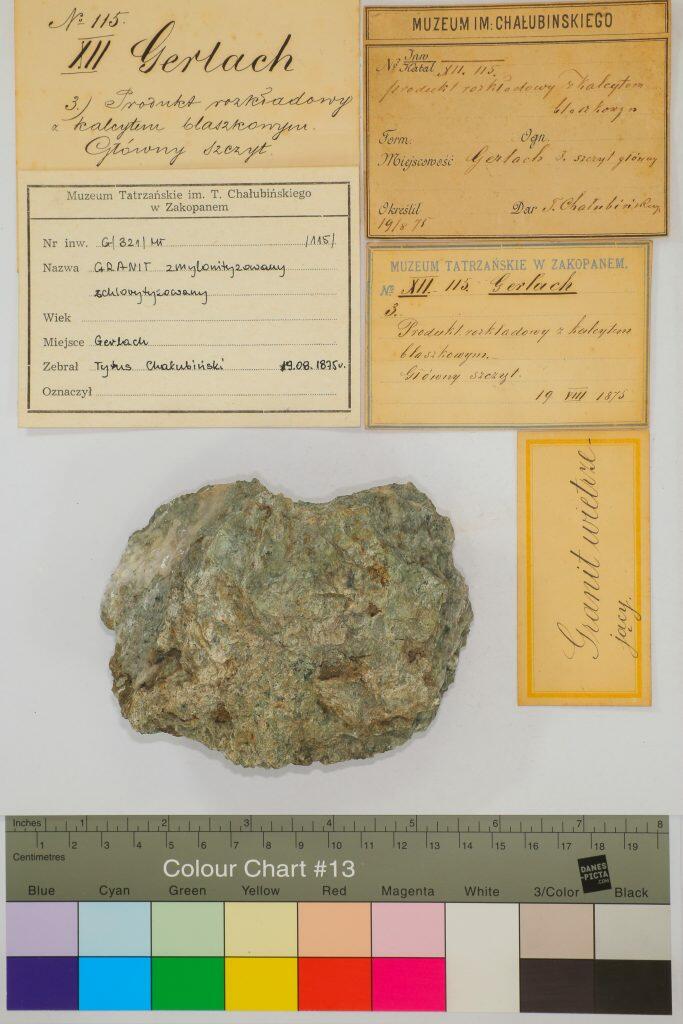 No 115.
XII Gerlach
3.) Produkt rozkładowy
z kalcytem blaszkowym.
Główny szczyt.
MUZEUM IM: CHAŁUBIŃSKIEGO
No Inw
Katal XII. 115.
produkt rozkładowy z kalcytem
blaszkowym
Form. Ogn.
Miejscowość Gerlach 3. szczyt główny
Określił Dar T. Chałubińskiego
19/8 75
Muzeum Tatrzańskie im. T. Chałubińskiego
w Zakopanem
Nr inw. G/321/MT /115/
Nazwa GRANIT zmylonityzowany
schlorytyzowany
Wiek
Miejsce Gerlach
Zebrał Tytus Chałubiński 19.08.1875r.
Oznaczył
MUZEUM TATRZAŃSKIE W ZAKOPANEM.
No XII. 115. Gerlach
3.
Produkt rozkładowy z kalcytem
blaszkowym.
Główny szczyt.
19 VIII 1875
Granit wietrze-
jący.
Inches 1 2 3 4 5 6 7 8
1 2 3 4 5 6 7 8 9 10 11 12 13 14 15 16 17 18 19
Centimetres
Colour Chart #13
DANES
-PICTA
.COM
Blue Cyan Green Yellow Red Magenta White 3/Color Black